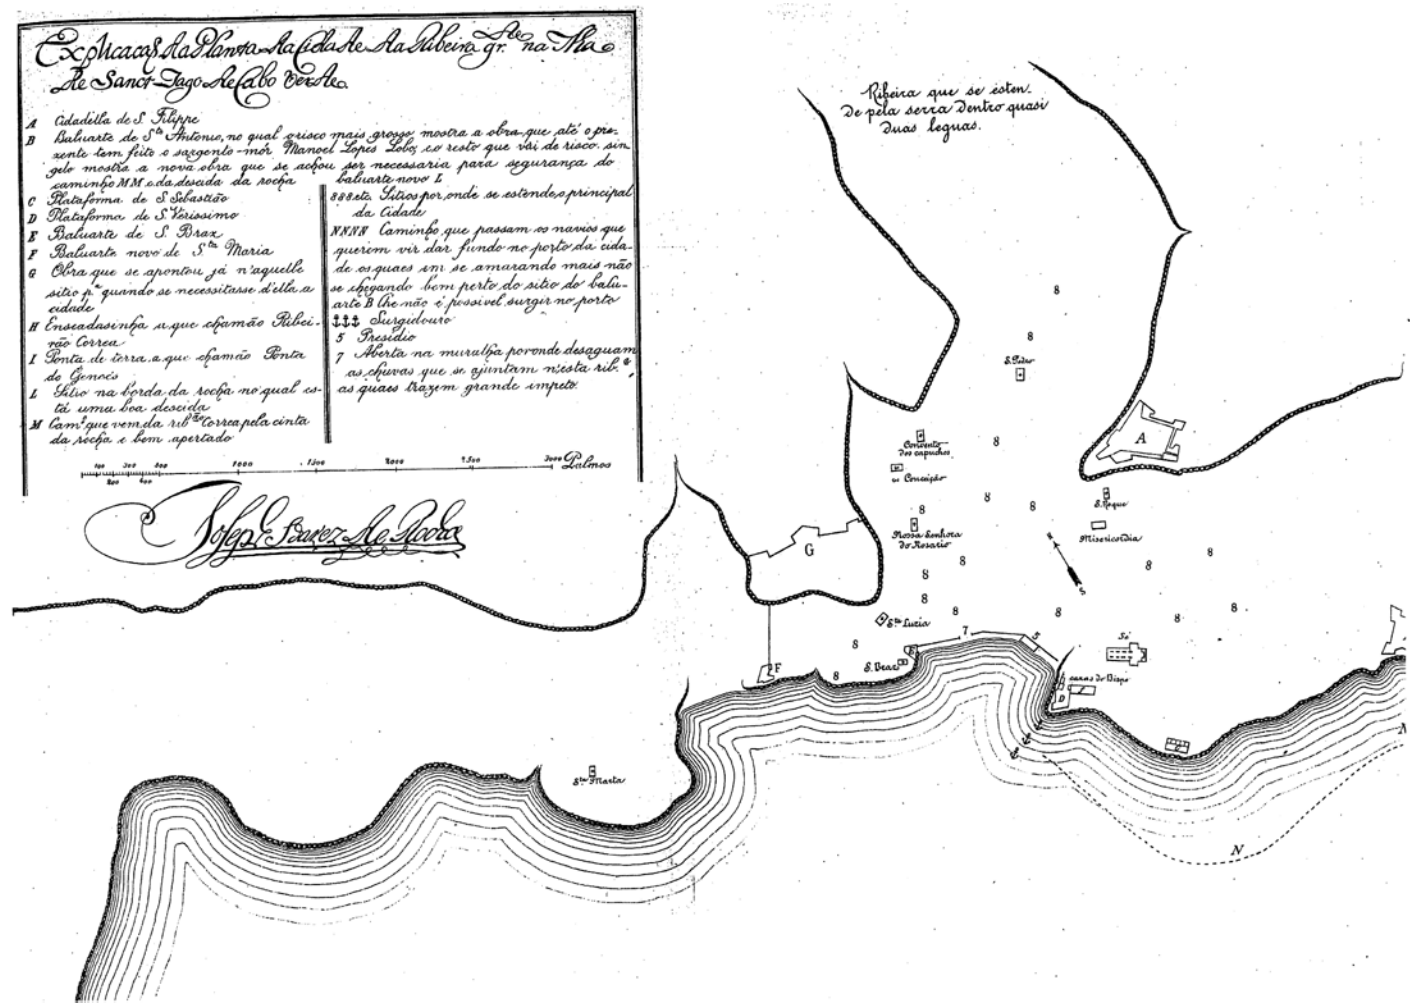 Explicacaõ da Planta da Cidade da Ribeira gr.de na Ilha
de Sanct-Iago de Cabo Verde.
A Cidadella de S. Filippe
B Baluarte de S.to Antonio, no qual o risco mais grosso mostra a obra que até o pre-
zente tem feito o sargento-mór Manoel Lopes Lobo, e o resto que vai de risco sin-
gelo mostra a nova obra que se achou ser necessaria para segurança do
caminho MM e da descida da rocha baluarte novo L
C Plataforma de S. Sebastião
D Plataforma de S. Verissimo
E Baluarte de S. Braz
F Baluarte novo de S.ta Maria
G Obra que se apontou já n'aquelle
sitio p.a quando se necessitasse d'ella a
cidade
H Enseadasinha a que chamão Ribei-
rão Correa
I Ponta de terra a que chamão Ponta
do Genoes
L Sitio na borda da rocha no qual es-
tá uma boa descida
M Cam.o que vem da rib.rão Correa pela cinta
da rocha e bem apertado
888 etc. Sitios por onde se estende o principal
da Cidade
NNNN Caminho que passam os navios que
querem vir dar fundo no porto da cida-
de os quaes im se amarando mais não
se chegando bem perto do sitio do balu-
arte B lhe não é possivel surgir no porto
Surgidouro
5 Presidio
7 Aberta na muralha por onde desaguam
as chuvas que se ajuntam n'esta rib.a
as quaes trazem grande impeto.
100 300 500 1000 1500 2000 2500 3000 Palmos
200 400
Ribeira que se esten.
de pela serra dentro quasi
duas leguas.
8
8
S. Pedro
A
Convento
dos capuchos
8
Conceição
8
8
8
S. Roque
Nossa Senhora
do Rosario
Misericordia
N
S
G
8
8
8
8
8
8
8
8
8
S.ta Luzia
7
5
Sé
8
S. Braz
F
8
casas do Bispo
D
S.ta Marta
N
N